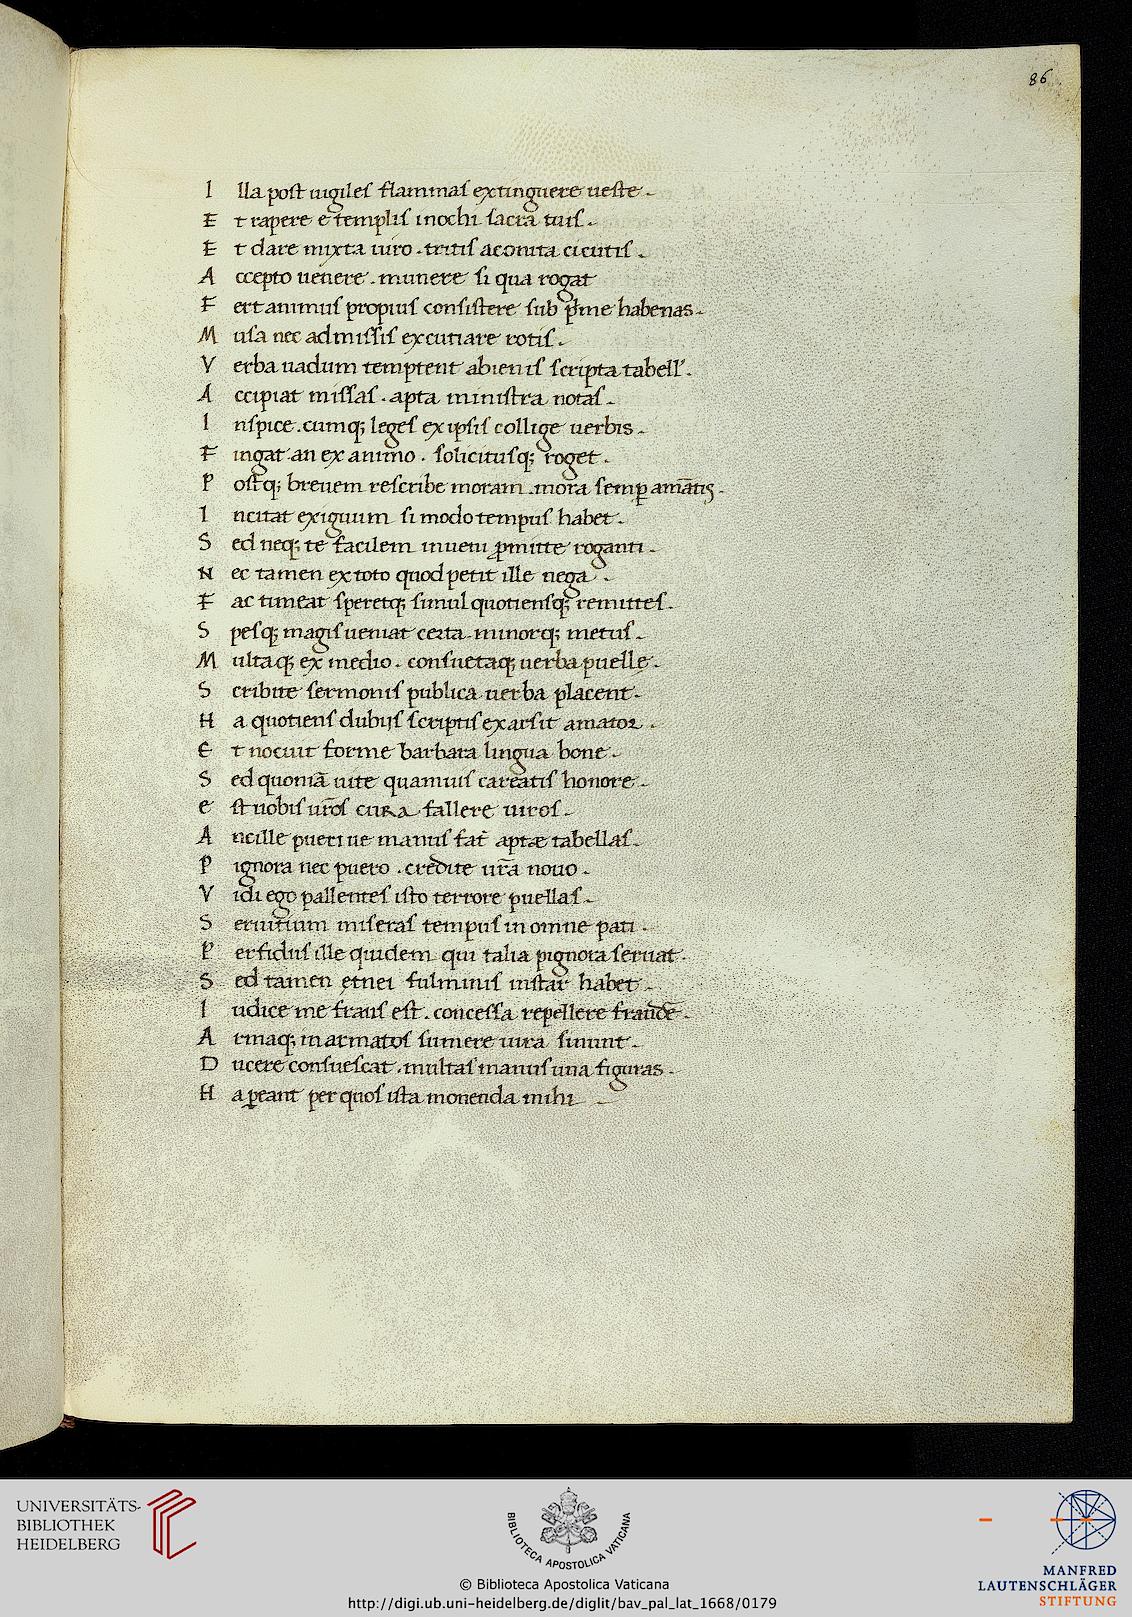 86
I lla post uigiles flammas extinguere ueste.
E t rapere e templis inochi sacra tuis.
E t dare mixta uiro. tritis aconita cicutis.
A ccepto uenere. munere si qua rogat
F ert animus propius consistere sub p̄me habenas.
M usa nec admissis excutiare rotis.
V erba uadum temptent abienis scripta tabell'.
A ccipiat missas. apta ministra notas.
I nspice. cumq; leges ex ipsis collige uerbis.
F ingat an ex animo. solicitusq; roget.
P ostq; breuem rescribe moram. mora semꝑ amātis.
I ncitat exiguum si modo tempus habet.
S ed neq; te facilem inueni ꝓmitte roganti.
N ec tamen ex toto quod petit ille nega.
F ac timeat speretq; simul quotiensq; remittes.
S pesq; magis ueniat certa. minorq; metus.
M ultaq; ex medio. consuetaq; uerba puellę.
S cribite sermonis publica uerba placent.
H a quotiens dubijs scriptis exarsit amator.
E t nocuit forme barbara lingua bone.
S ed quoniā uite quamuis careatis honore.
e st uobis ur̄os cura fallere uiros.
A ncille pueri ue manus fat̄ aptæ tabellas.
P ignora nec puero. credite ur̄a nouo.
V idi ego pallentes isto terrore puellas.
S eruitium miseras tempus in omne pati.
P erfidus ille quidem qui talia pignora seruat.
S ed tamen etnei fulminis instar habet.
I udice me fraus est. concessa repellere fraudē.
A rmaq; in armatos sumere iura sinunt.
D ucere consuescat. multas manus una figuras.
H a ꝑeant per quos ista monenda mihi
UNIVERSITÄTS-
BIBLIOTHEK
HEIDELBERG
BIBLIOTECA APOSTOLICA VATICANA
MANFRED
LAUTENSCHLÄGER
STIFTUNG
© Biblioteca Apostolica Vaticana
http://digi.ub.uni-heidelberg.de/diglit/bav_pal_lat_1668/0179